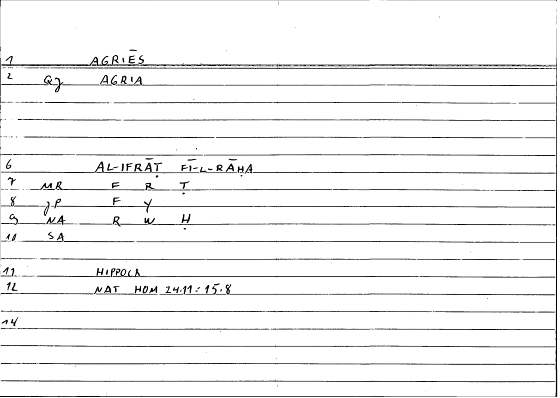 1 AGRIĒS
2 Qj AGRIA
6 AL-IFRĀṬ FĪ-L-RĀḤA
7 MR F R Ṭ
8 JP F Y
9 NA R W Ḥ
10 SA
11 HIPPOCR
12 NAT HOM 24.11 = 15.8
14